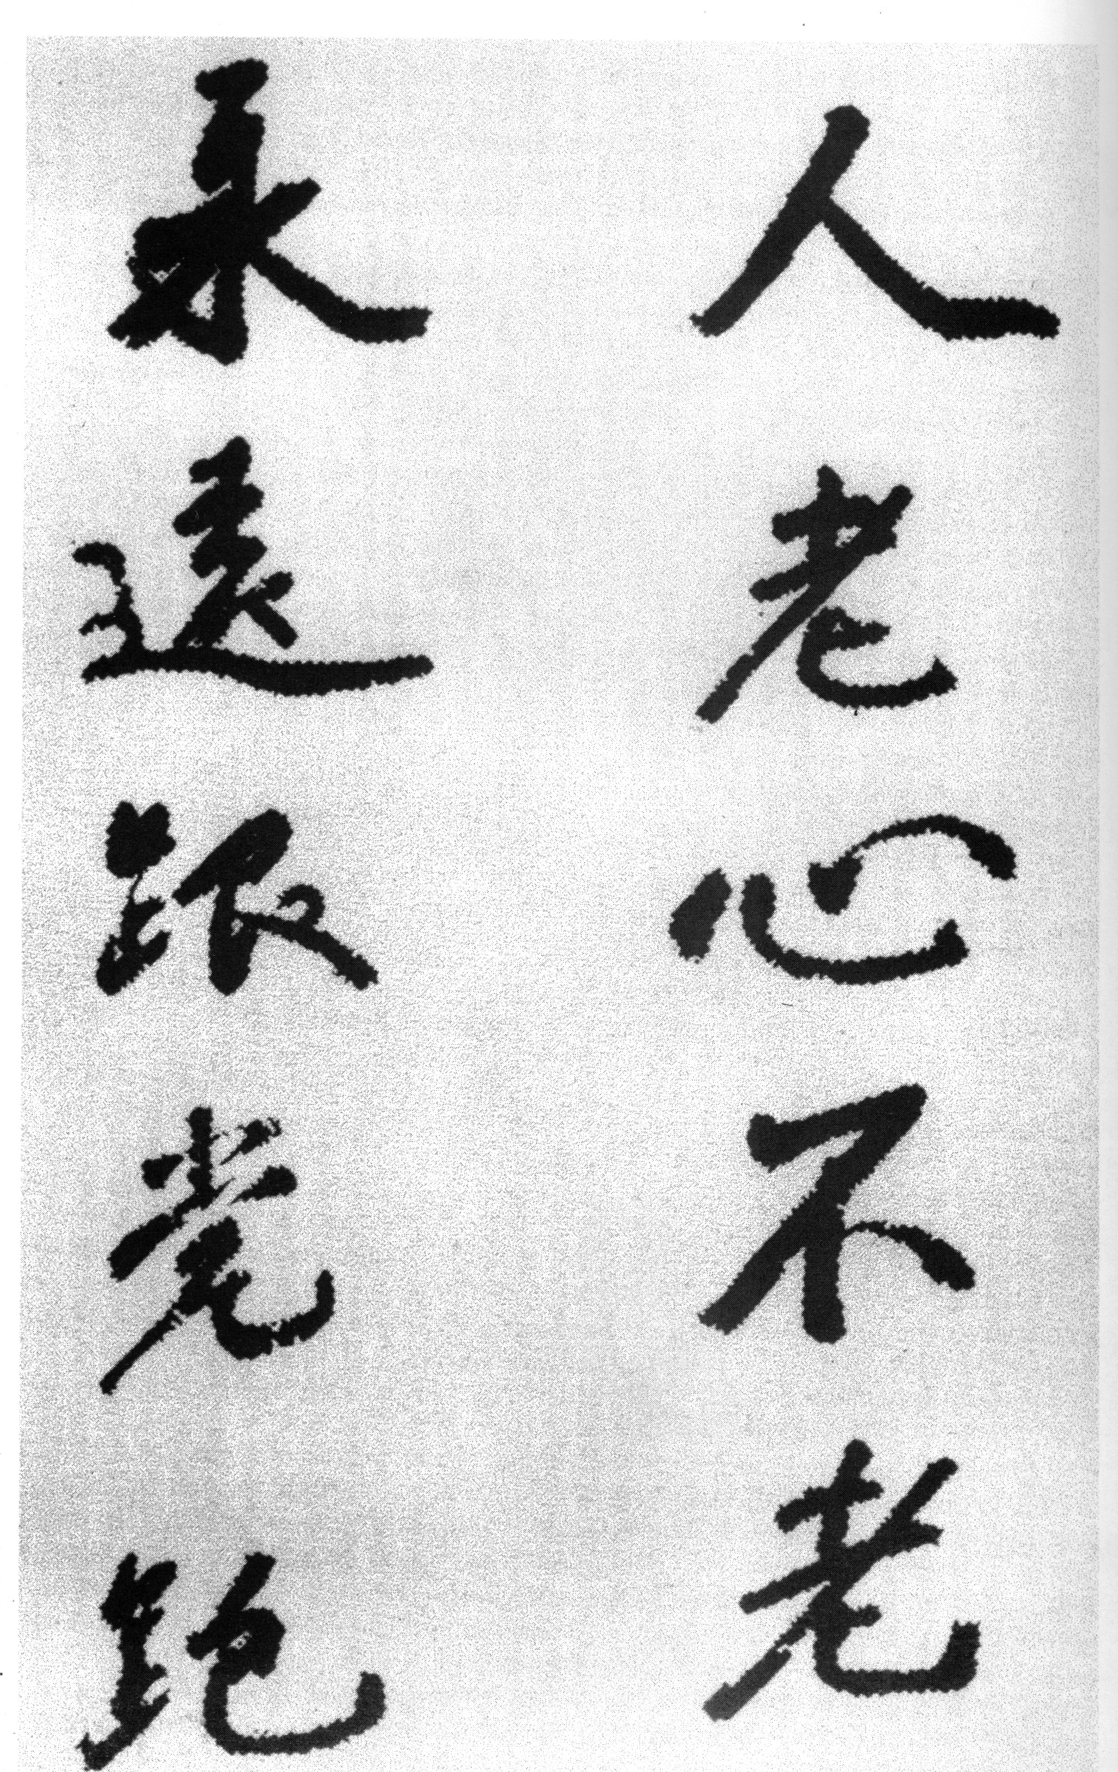 人老心不老
永遠跟党跑